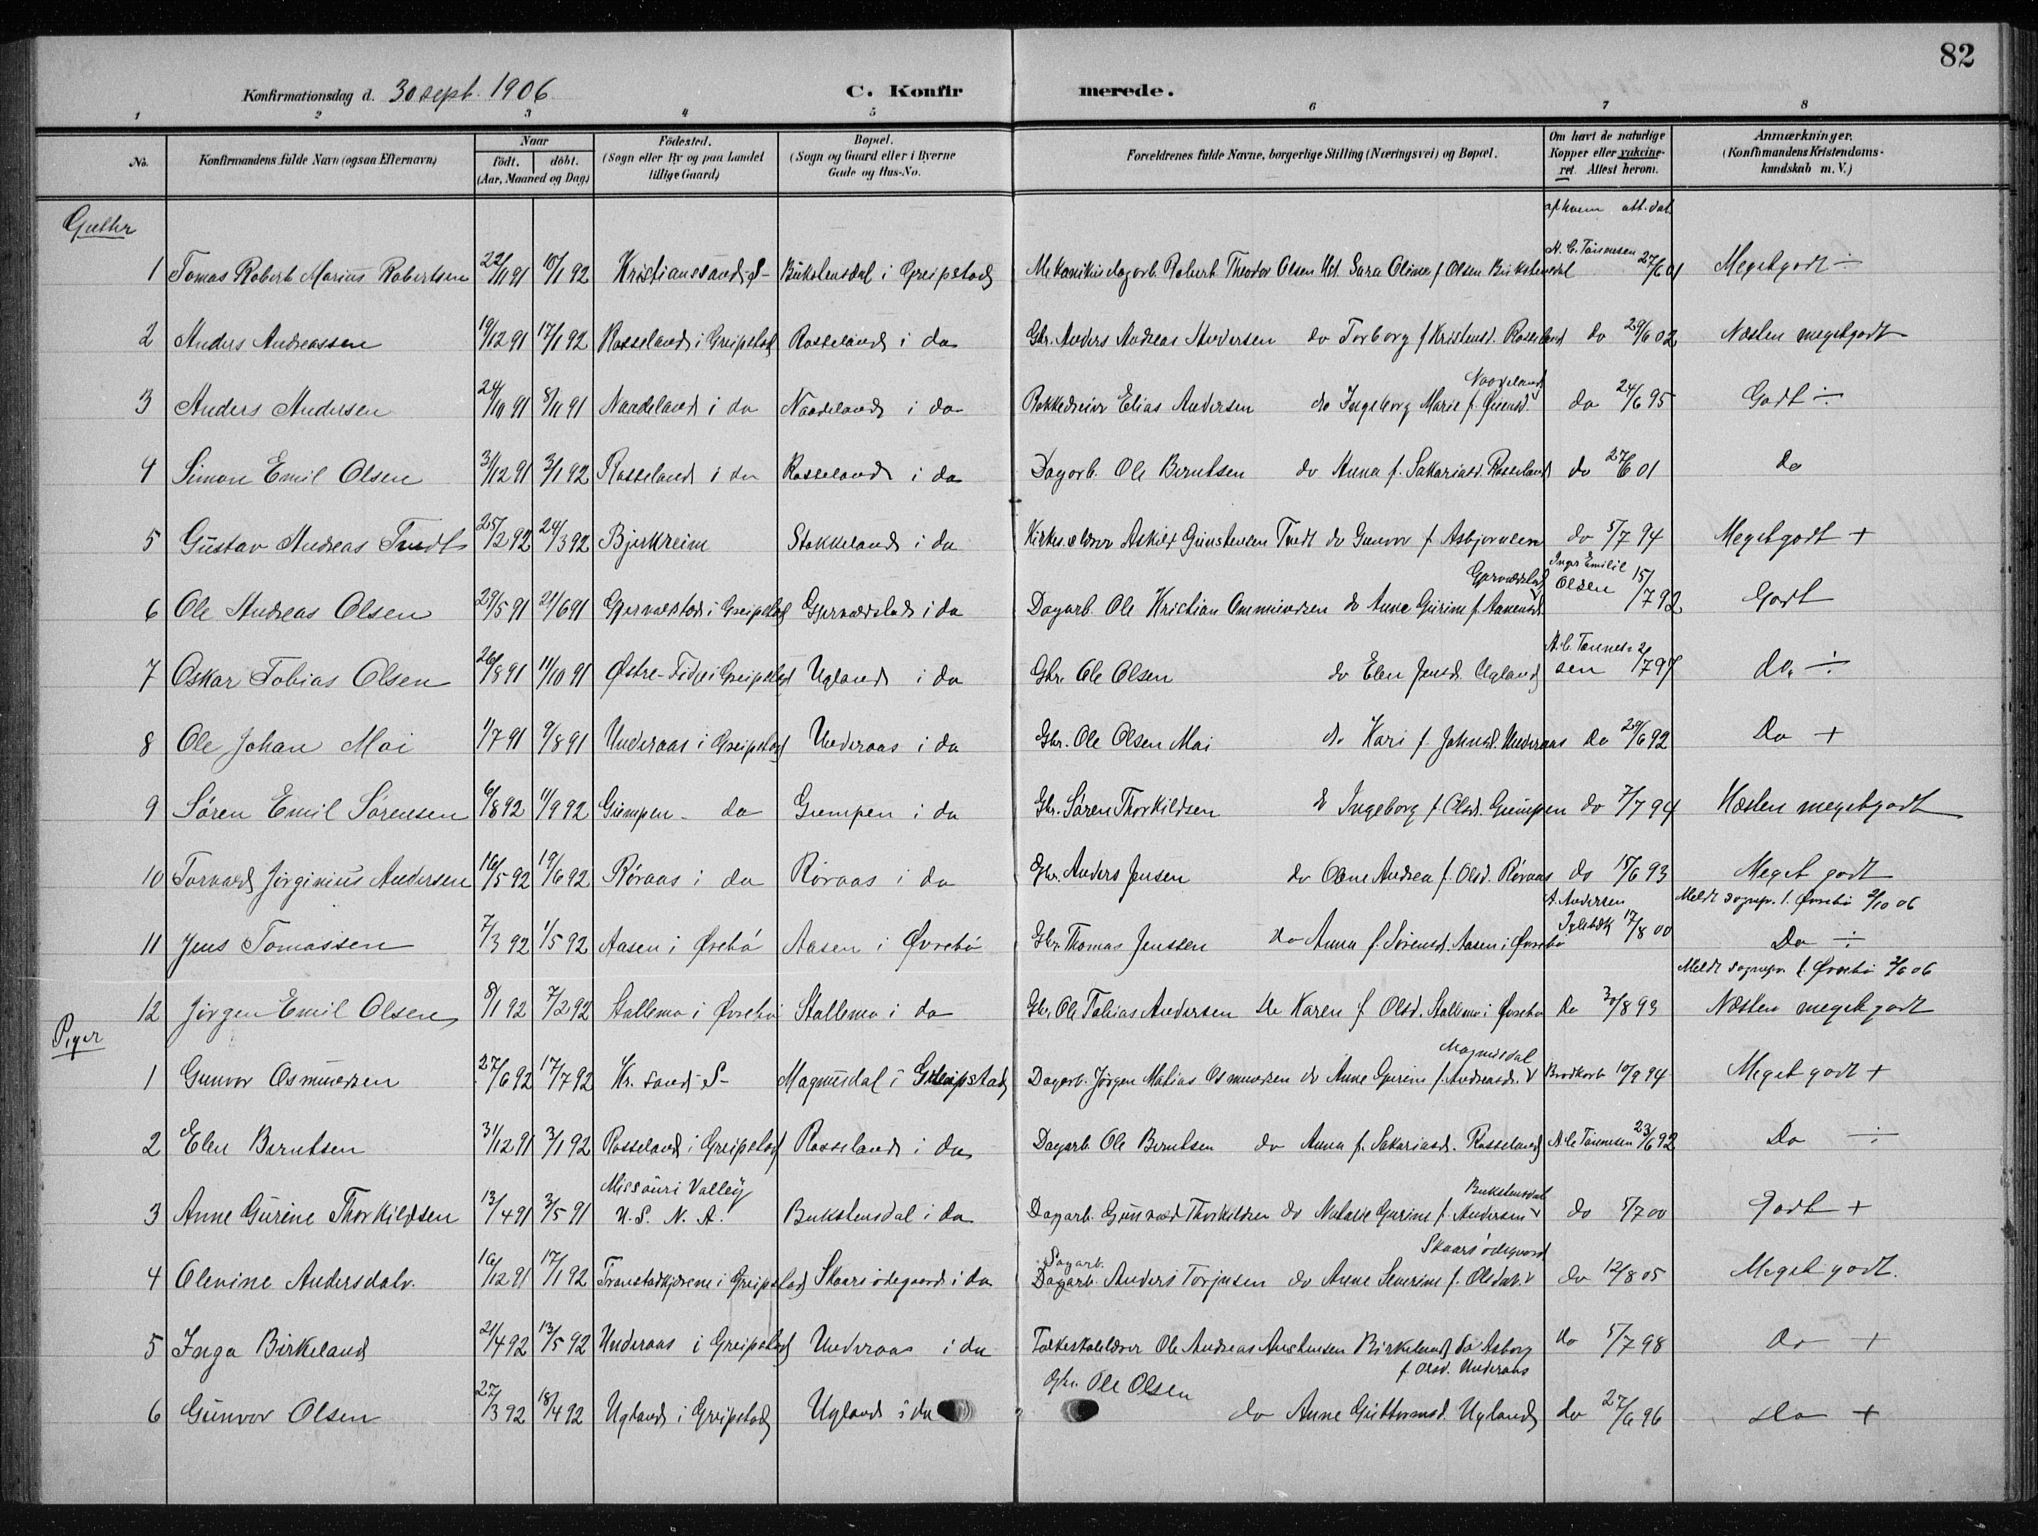 82
Konfirmationsdag d. 30 sept. 1906 C. Konfirmerede.
1 2 3 4 5 6 7 8
No. Konfirmandens fulde Navn (ogsaa Efternavn) Naar født. døbt. (Aar, Maaned og Dag) Födested. (Sogn eller By og paa Landet tillige Gaard) Bopæl. (Sogn og Gaard eller i Byerne Gade og Hus-No. Forældrenes fulde Navne, borgerlige Stilling (Næringsvei) og Bopæl. Om havt de naturlige Kopper eller vakcineret. Attest herom. Anmærkninger. (Konfirmandens Kristendomskundskab m. V.)
af hvem att. dat.
Gutter
1 Tomas Robert Marius Robertsen 22/11 91 10/1 92 Kristianssand S- Bukstensdal i Greipstad Mekanikus dagarb. Robert Theodor Olsen Ust. Sara Oline f. Olsen Bukstensdal N. C. Tønnesen 27/6 01 Meget godt ÷
2 Anders Andreassen 19/12 91 17/1 92 Rosseland i Greipstad Rosseland i do Gbr. Anders Andreas Andersen do Torborg f. Kristensd. Rosseland do 29/6 02 Næsten meget godt
3 Anders Andersen 24/10 91 8/11 91 Naadeland i do Naadeland i do Elias Andersen do Ingeborg Marie f. Naadeland do 24/6 95 Godt ÷
4 Simon Emil Olsen 31/12 91 3/1 92 Rosseland i do Rosseland i do Dagarb. Ole Berntsen do Anna f. Sakariasd. Rosseland do 27/6 01 do
5 Gustav Andreas Tvedt 25/2 92 24/3 92 Bjerkreim Stokkeland i do Askild Gunstensen Tvedt do Gunvor f. Asbjørnsen do 5/7 94 Meget godt +
6 Ole Andreas Olsen 29/5 91 21/6 91 Gjervestad i Greipstad Gjervedstad i do Dagarb. Ole Kristian Ommundsen do Anne Gurine f. Aanensd. Gjervedstad Inger Emilie Olsen 15/7 92 Godt
7 Oskar Tobias Olsen 26/8 91 11/10 91 Østre-Fidje i Greipstad Ugland i do Gbr. Ole Olsen do Elen Jensd. Ugland N. C. Tønnessen 2/7 97 do. ÷
8 Ole Johan Moi 1/7 91 9/8 91 Underaas i Greipstad Underaas i do Gbr. Ole Olsen Moi do Kari f. Johnsd. Underaas do 29/6 92 Do +
9 Søren Emil Sørensen 6/8 92 11/9 92 Gumpen - do Gumpen i do Gbr. Søren Thorkildsen do Ingeborg f. Olsd. Gumpen do 7/7 94 Næsten meget godt
10 Torvald Jørginius Andersen 16/5 92 19/6 92 Røraas i do Røraas i do Gbr. Anders Jensen do Olene Andrea f. Olsd. Røraas do 15/6 93 Meget godt
Meldt sognepr. t. Øvrebø 2/10 06
11 Jens Tomassen 7/3 92 1/5 92 Aasen i Øvrebø Aasen i Øvrebø Gbr. Thomas Jenssen do Anna f. Sørensd. Aasen i Øvrebø A. Andersen 17/8 00 Do ÷
Meldt sognepr. t. Øvrebø
12 Jørgen Emil Olsen 8/1 92 7/2 92 Stallemo i Øvrebø Stallemo i do Gbr. Ole Tobias Andersen do Karen f. Olsd. Stallemo i Øvrebø do 30/8 93 Næsten meget godt
Piger
1 Gunvor Osmundsen 27/6 92 17/7 92 Kr. sand S- Magnusdal i Greipstad Dagarb. Jørgen Matias Osmundsen do Anne Gurine f. Andreasd. Magnusdal Brodkorb 10/9 94 Meget godt +
2 Elen Berntsen 31/12 91 3/1 92 Rosseland i Greipstad Rosseland i do Dagarb. Ole Berntsen do Anna f. Sakariasd. Rosseland N. C. Tønnesen 23/6 92 Do ÷
3 Anne Gurine Thorkildsen 13/4 91 3/5 91 Missouri Valley U. S. N. A. Bukstensdal i do Dagarb. Gunvald Thorkildsen do Natalie Gurine f. Andersen Bukstensdal do 5/7 00 Godt +
4 Olevine Andersdatr. 16/12 91 17/1 92 i Greipstad Skaarsødegaard i do Sagarb. Dagarb. Anders Torjusen do Anne Severine f. Olsdat. Skaarsødegaard do 12/8 05 Meget godt.
5 Inga Birkeland 21/4 92 13/5 92 Underaas i Greipstad Underaas i do Folkeskolelærer Ole Andreas Birkeland do Asborg f. Olsd. Underaas do 5/7 98 do +
6 Gunvor Olsen 27/3 92 18/4 92 Ugland i Greipstad Ugland i do Gbr. Ole Olsen do Anne Guttormsd. Ugland do 27/6 96 do +